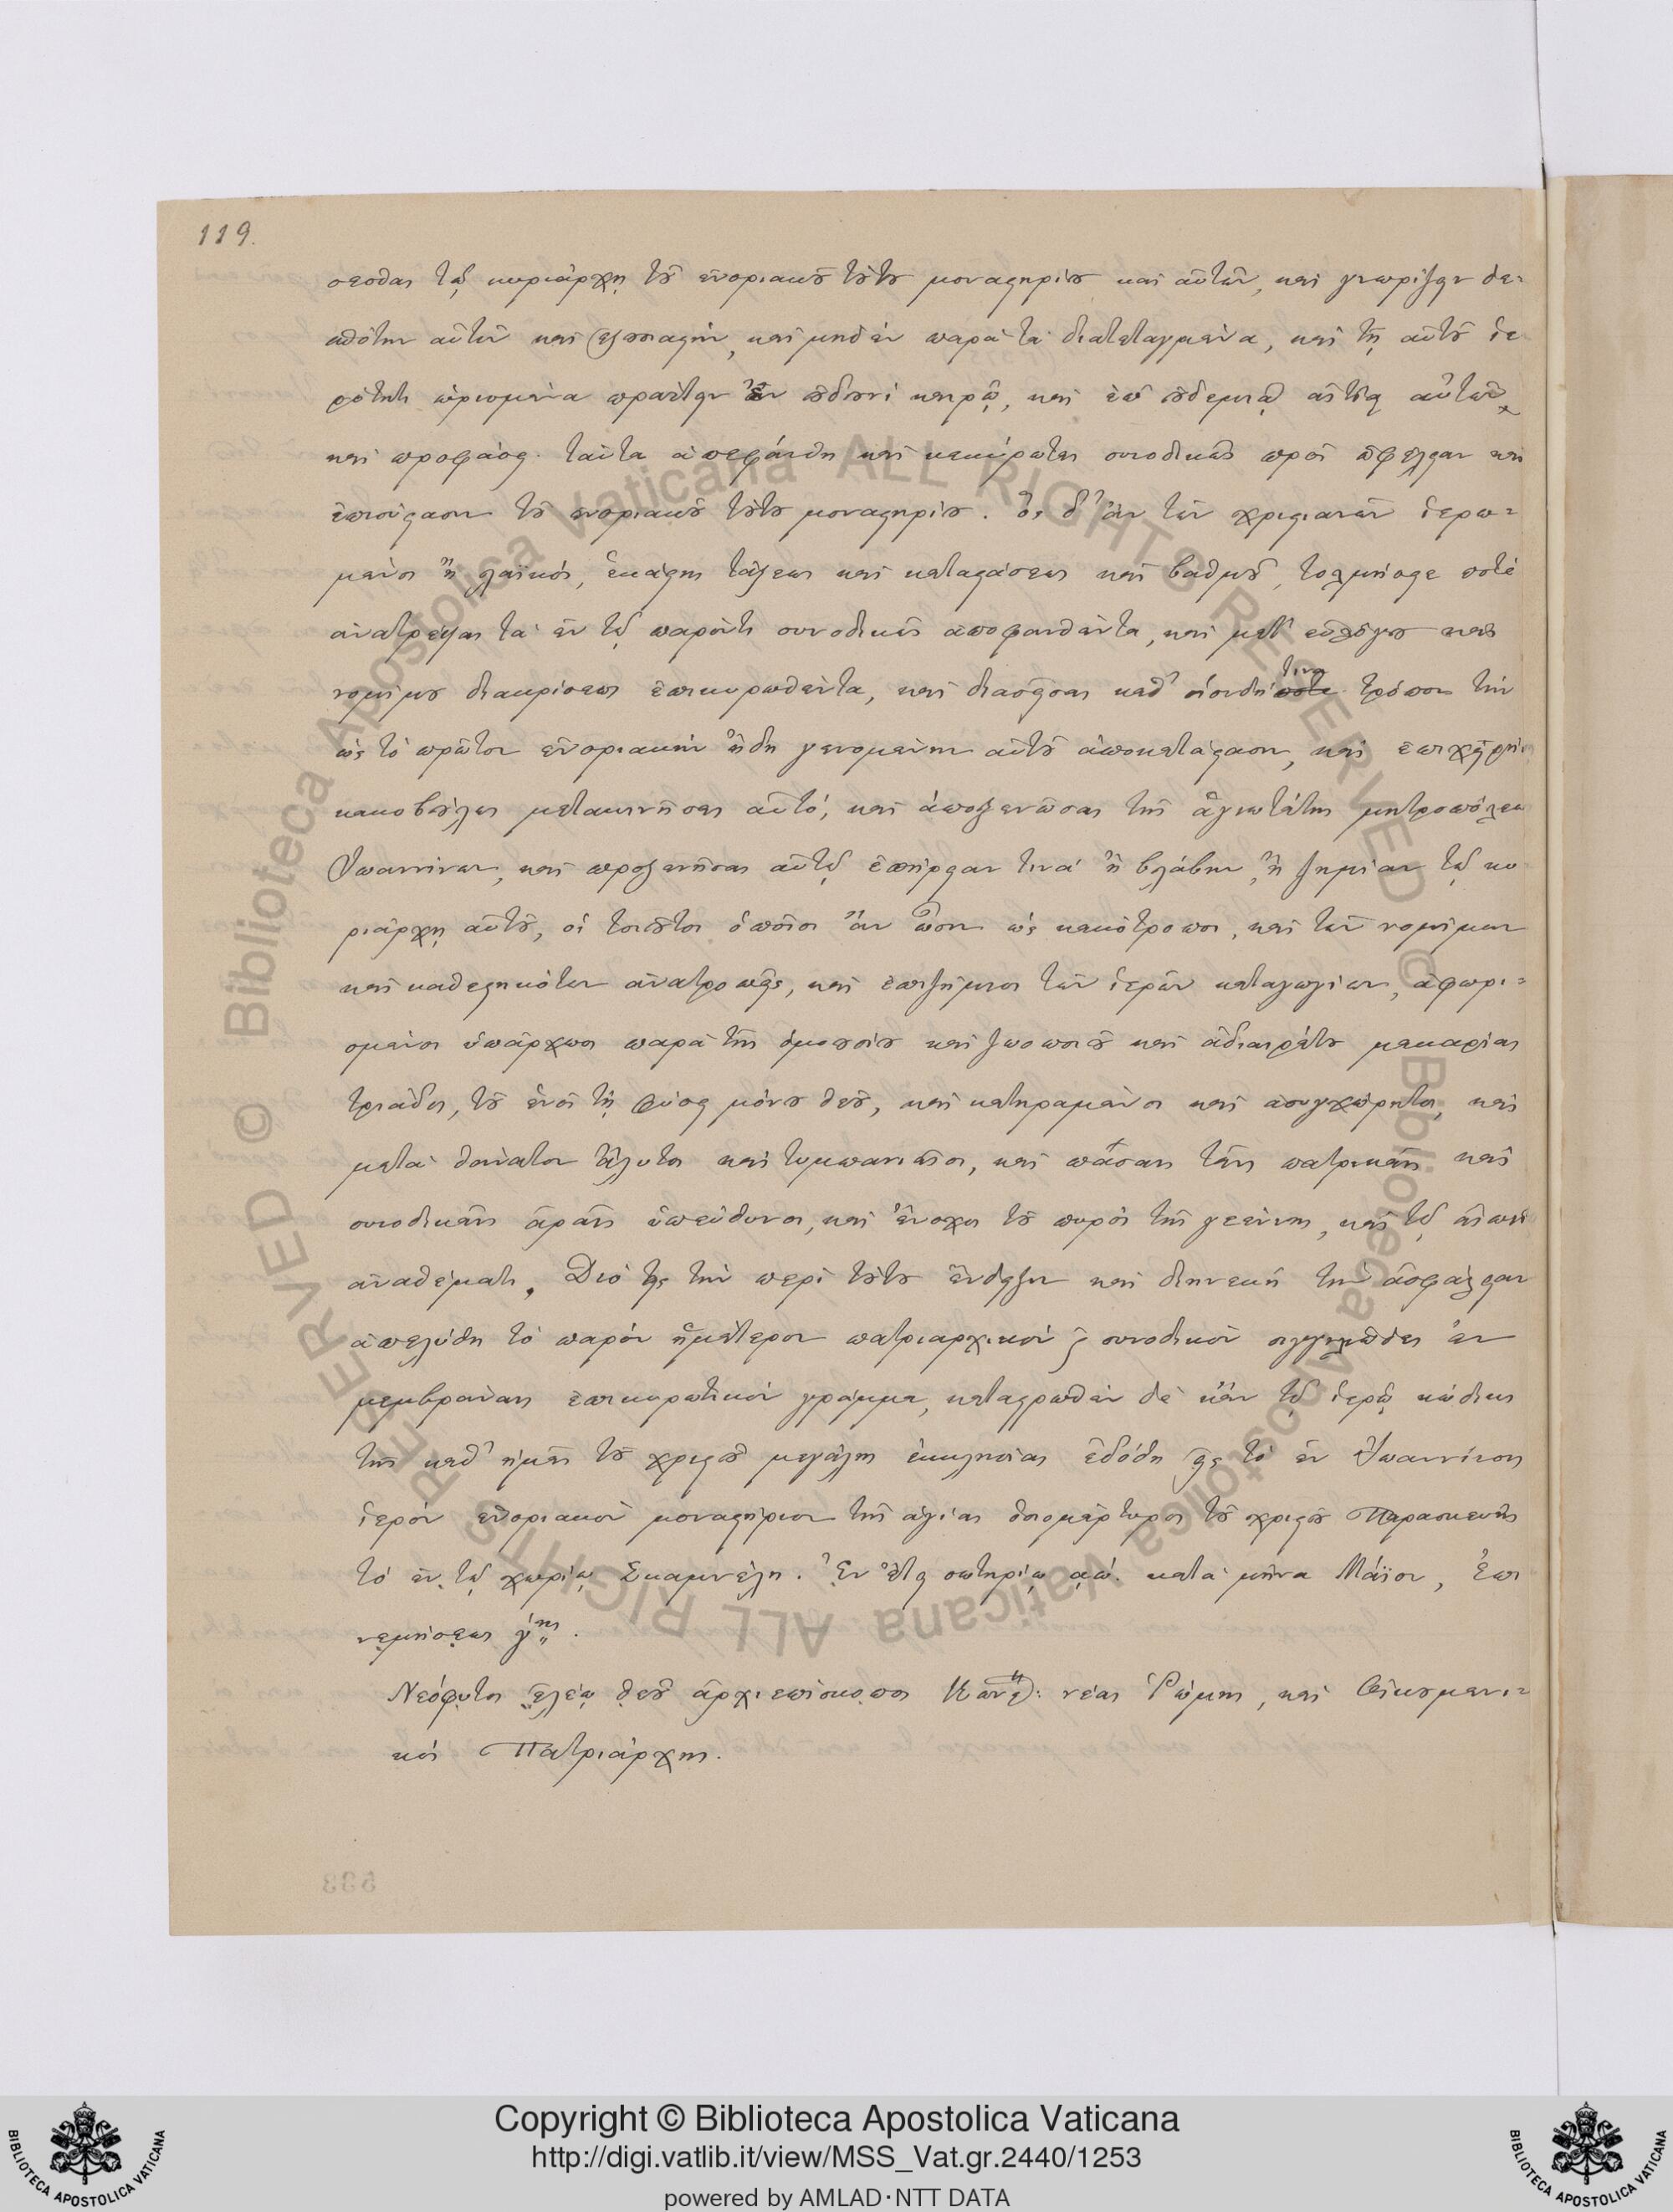 119.
σεσθαι τῷ κυριάρχῃ τοῦ ἐνοριακοῦ τούτου μοναστηρίου καὶ αὐτῶν, καὶ γνωρίζειν δε-
σπότην αὐτῶν καὶ ἐξουσιαστὴν, καὶ μηδὲν παρὰ τὰ διατεταγμένα, καὶ τῇ αὐτοῦ ἱε
ρότητι ὡρισμένα πράττειν ἐν οὐδενὶ καιρῷ, καὶ ἐπ' οὐδεμιᾷ αἰτίᾳ αὐτῶν
καὶ προφάσει. ταῦτα ἀπεφάνθη καὶ κεκύρωται συνοδικῶς πρὸς ὠφέλειαν καὶ
ἐπισύστασιν τοῦ ἐνοριακοῦ τούτου μοναστηρίου. ὃς δ' ἂν τῶν χριστιανῶν ἱερω-
μένος ἢ λαϊκὸς, ἑκάστης τάξεως καὶ καταστάσεως καὶ βαθμοῦ, τολμήσειε ποτὲ
ἀνατρέψαι τὰ ἐν τῷ παρόντι συνοδικῶς ἀποφανθέντα, καὶ μετ' εὐλόγου καὶ
νομίμου διακρίσεως ἐπικυρωθέντα, καὶ διασεῖσαι καθ' οἱονδήτινα τρόπον τὴν
ὡς τὸ πρῶτον ἐνοριακὴν ἤδη γενομένην αὐτοῦ ἀποκατάστασιν, καὶ ἐπιχειρήσῃ
κακοβούλως μετακινῆσαι αὐτὸ, καὶ ἀποξενῶσαι τῆς ἁγιωτάτης μητροπόλεως
Ἰωαννίνων, καὶ προξενῆσαι αὐτῷ ἐπήρειαν τινὰ ἢ βλάβην, ἢ ζημίαν τῷ κυ
ριάρχῃ αὐτοῦ, οἱ τοιοῦτοι ὁποῖοι ἂν ὦσιν ὡς κακότροποι, καὶ τῶν νομίμων
καὶ καθεστηκότων ἀνατροπεῖς, καὶ ἐπιζήμιοι τῶν ἱερῶν καταγωγίων, ἀφωρι-
σμένοι ὑπάρχωσι παρὰ τῆς ὁμοουσίου καὶ ζωοποιοῦ καὶ ἀδιαιρέτου μακαρίας
τριάδος, τοῦ ἑνὸς τῇ φύσει μόνου θεοῦ, καὶ κατηραμένοι καὶ ἀσυγχώρητοι, καὶ
μετὰ θάνατον ἄλυτοι καὶ τυμπανιαῖοι, καὶ πάσαις ταῖς πατρικαῖς καὶ
συνοδικαῖς ἀραῖς ὑπεύθυνοι, καὶ ἔνοχοι τοῦ πυρὸς τῆς γεέννης, καὶ τῷ αἰωνίῳ
ἀναθέματι. Διὸ εἰς τὴν περὶ τούτου ἔνδειξιν καὶ διηνεκῆ τὴν ἀσφάλειαν
ἀπελύθη τὸ παρὸν ἡμέτερον πατριαρχικὸν ϗ συνοδικὸν σιγγιλλιῶδες ἐν
μεμβράναις ἐπικυρωτικὸν γράμμα, καταστρωθὲν δὲ κἂν τῷ ἱερῷ κώδικι
τῆς καθ' ἡμᾶς τοῦ χριστοῦ μεγάλης ἐκκλησίας ἐδόθη εἰς τὸ ἐν Ἰωαννίνοις
ἱερὸν ἐνοριακὸν μοναστήριον τῆς ἁγίας ὁσιομάρτυρος τοῦ χριστοῦ Παρασκευῆς
τὸ ἐν τῷ χωρίῳ Σκαμνέλη. Ἐν ἔτει σωτηρίῳ ͵αω. κατὰ μῆνα Μάϊον, Ἐπι
νεμήσεως γ´ης.
Νεόφυτος ἐλέῳ θεοῦ ἀρχιεπίσκοπος Κωνστ: νέας Ῥώμης, καὶ Οἰκουμενι-
κὸς Πατριάρχης.
Copyright © Biblioteca Apostolica Vaticana
http://digi.vatlib.it/view/MSS_Vat.gr.2440/1253
powered by AMLAD·NTT DATA
BIBLIOTECA APOSTOLICA VATICANA
BIBLIOTECA APOSTOLICA VATICANA